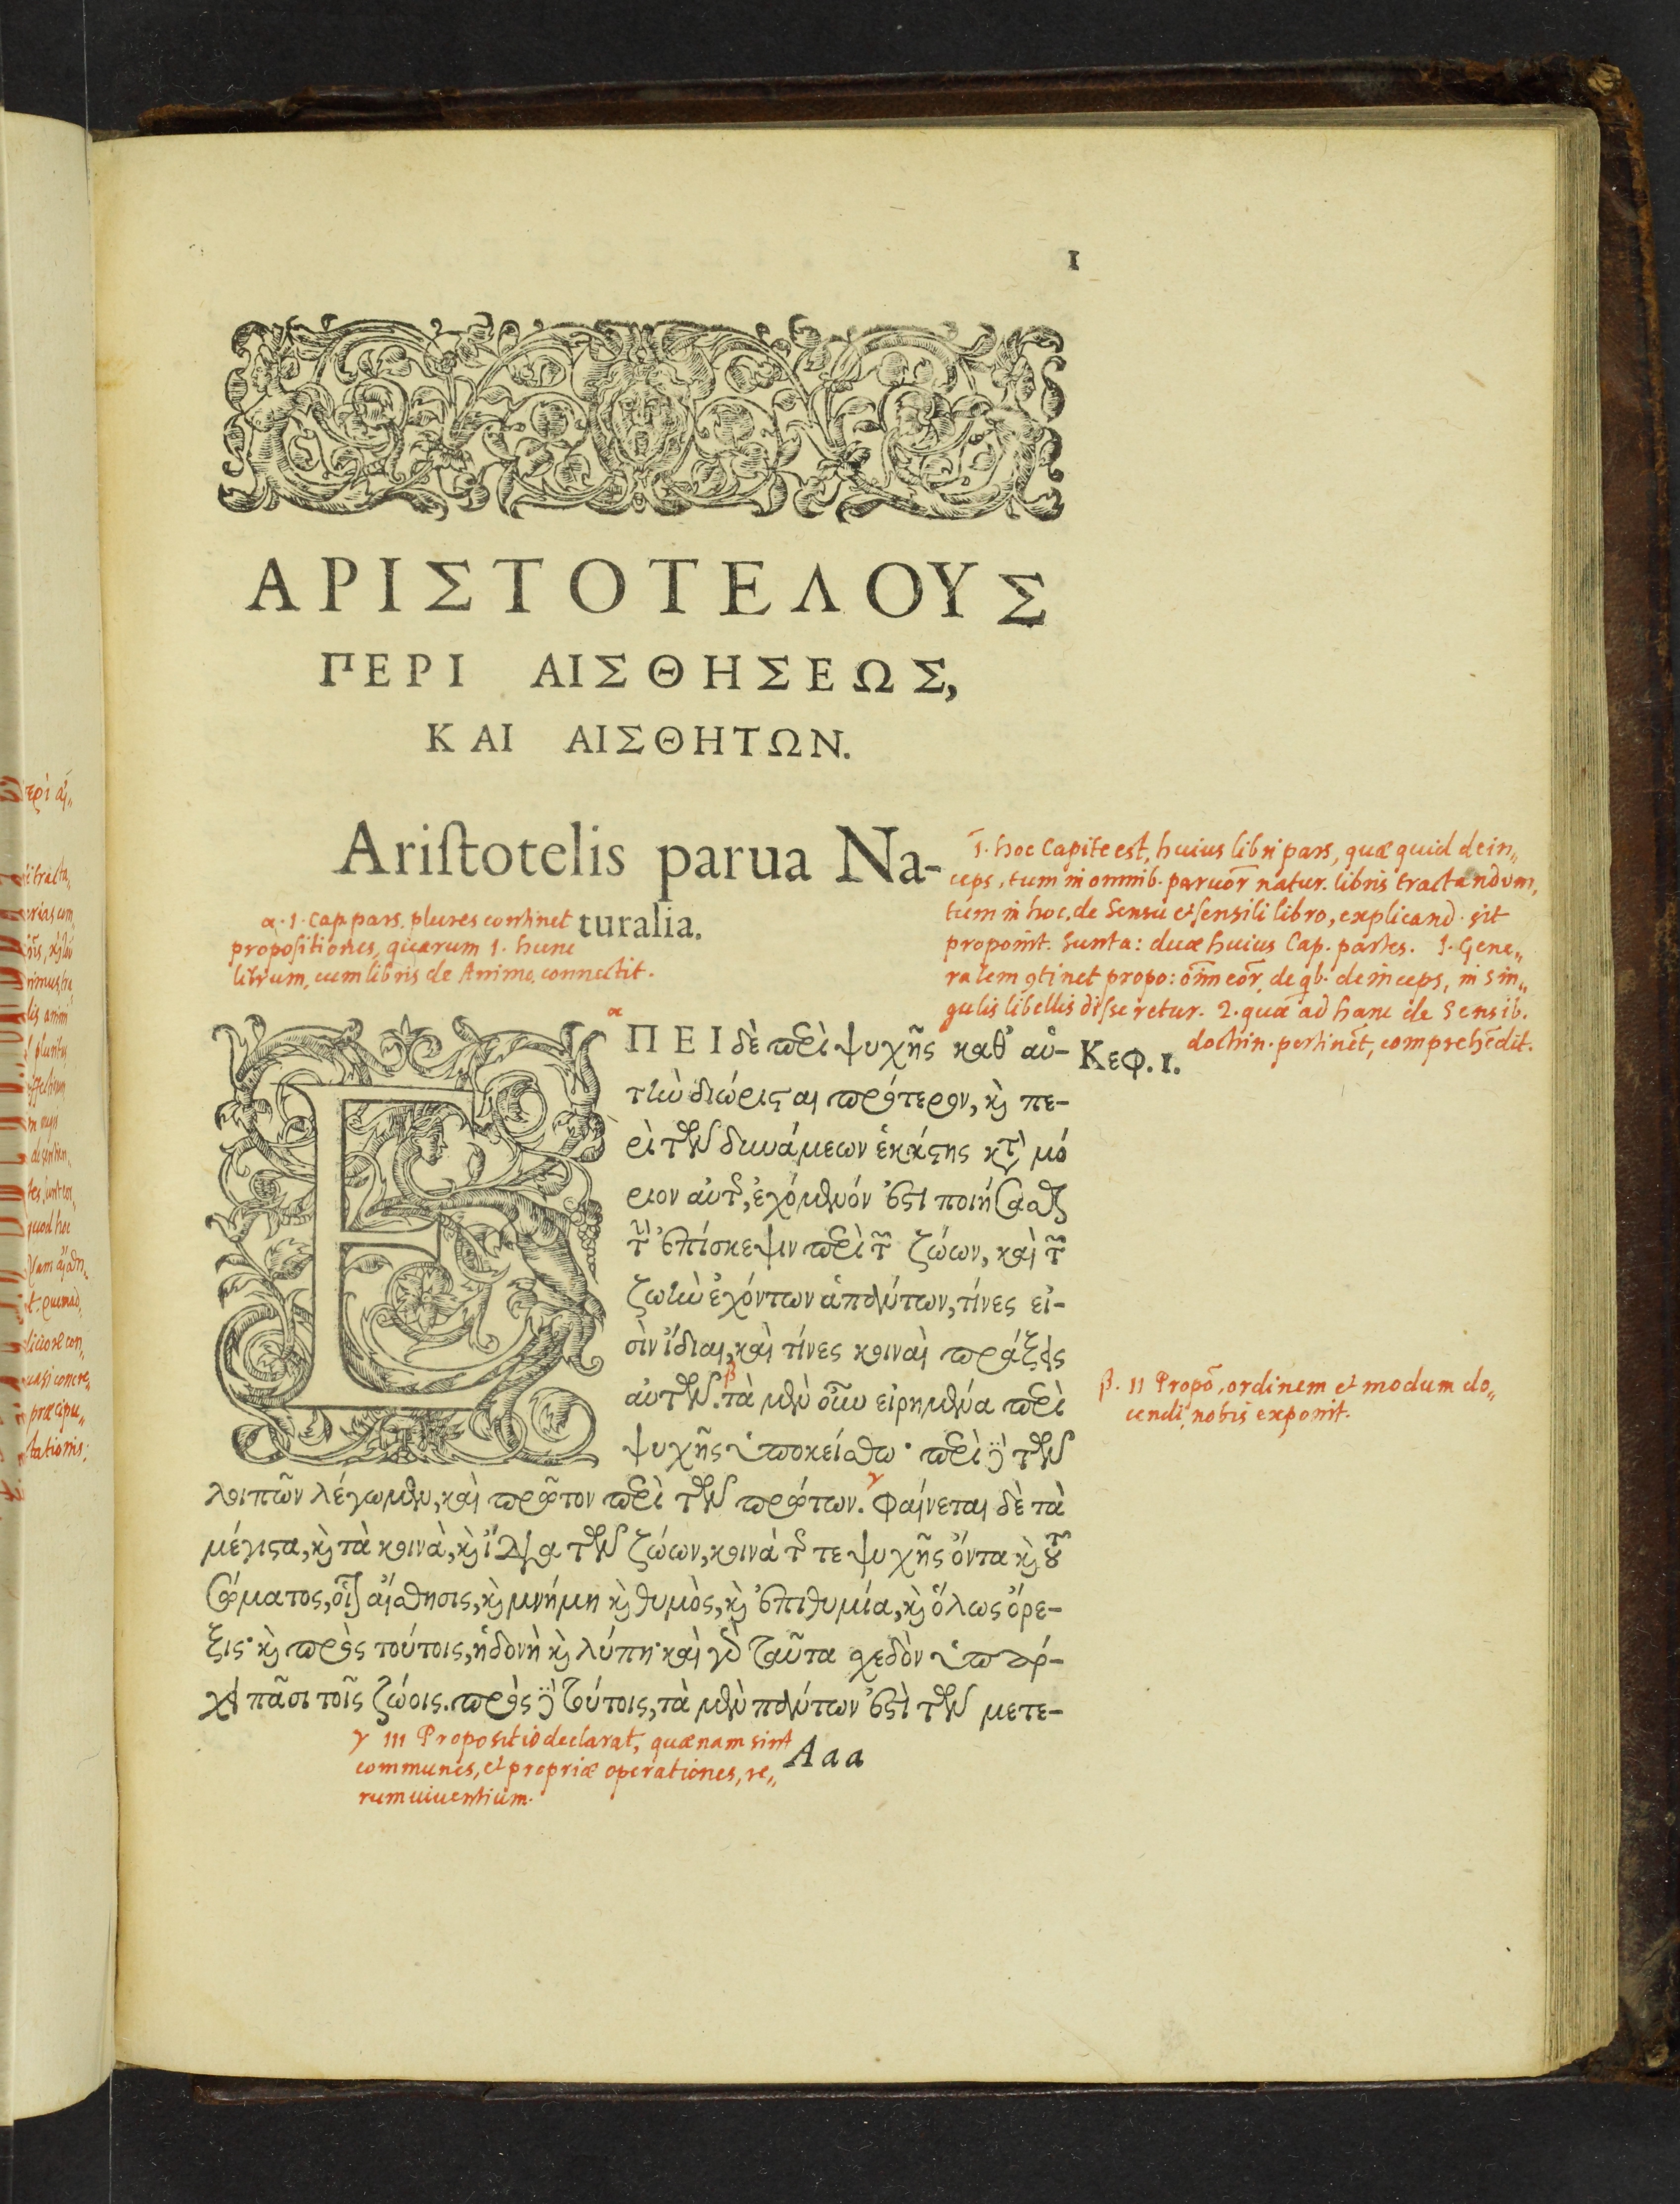 1
ΑΡΙΣΤΟΤΕΛΟΥΣ
ΠΕΡΙ ΑΙΣΘΗΣΕΩΣ,
ΚΑΙ ΑΙΣΘΗΤΩΝ.
Ariſtotelis parua Na-
turalia.
α. 1. Cap. pars. plures continet
propoſitiones, quarum 1. hunc
librum, cum libris de Anima, connectit.
1. hoc Capite est, huius libri pars, quæ quid dein„
ceps, tum in omnib. paruor̄ natur. libris tractandum,
tum in hoc, de Sensu et ſensili libro, explicand. sit
proponit. Sunta: duæ huius Cap. partes. 1. Gene„
ralem 9tinet propo: oīm eor̄, de qb. deinceps, in sin„
gulis libellis diſſeretur. 2. quæ ad hanc de Sensib.
doctrin. pertinēt, comprehēdit.
α
ΕΠΕΙ δὲ περὶ ψυχῆς καθ᾽ αὑ-
Κεφ. 1.
τὴν διώρισται πρότερον, καὶ πε-
ρὶ τῶν δυνάμεων ἑκάστης κατὰ μό
ριον αὐτῆς, ἐχόμενόν ἐστι ποιήσασθαι
τὴν ἐπίσκεψιν περὶ τῶν ζώων, καὶ τῶν
ζωὴν ἐχόντων ἁπάντων, τίνες εἰ-
σὶν ἴδιαι, καὶ τίνες κοιναὶ πράξεις
β
αὐτῶν. τὰ μὲν οὖν εἰρημένα περὶ
β. 11 Propō, ordinem et modum do„
cendi, nobis exponit.
ψυχῆς ὑποκείσθω· περὶ δὲ τῶν
γ
λοιπῶν λέγωμεν, καὶ πρῶτον περὶ τῶν πρώτων. φαίνεται δὲ τὰ
μέγιστα, καὶ τὰ κοινὰ, καὶ ἴδια τῶν ζώων, κοινὰ τῆς τε ψυχῆς ὄντα καὶ τοῦ
σώματος, οἷον αἴσθησις, καὶ μνήμη καὶ θυμὸς, καὶ ἐπιθυμία, καὶ ὅλως ὄρε-
ξις· καὶ πρὸς τούτοις, ἡδονὴ καὶ λύπη· καὶ γὰρ ταῦτα σχεδὸν ὑπάρ-
χει πᾶσι τοῖς ζώοις. πρὸς δὲ τούτοις, τὰ μὲν πάντων ἐστὶ τῶν μετε-
Aaa
γ 111 Propositio declarat, quænam sint
communes, et propriæ operationes, re„
rum uiuentium.